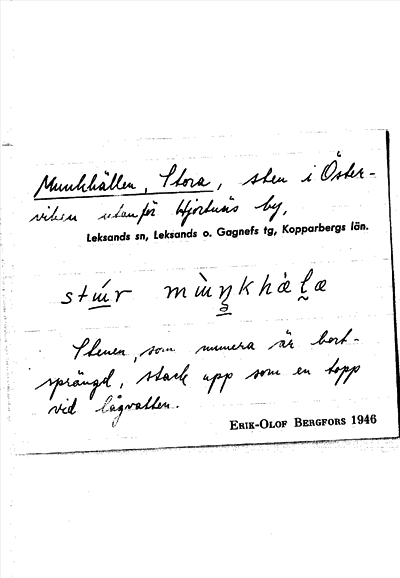 Munkhällen, Stora, sten i Öster-
viken utanför Hjortnäs by,
Leksands sn, Leksands o. Gagnefs tg, Kopparbergs län.
Stenen, som numera är bort-
sprängd, stack upp som en topp
vid lågvatten.
ERIK-OLOF BERGFORS 1946